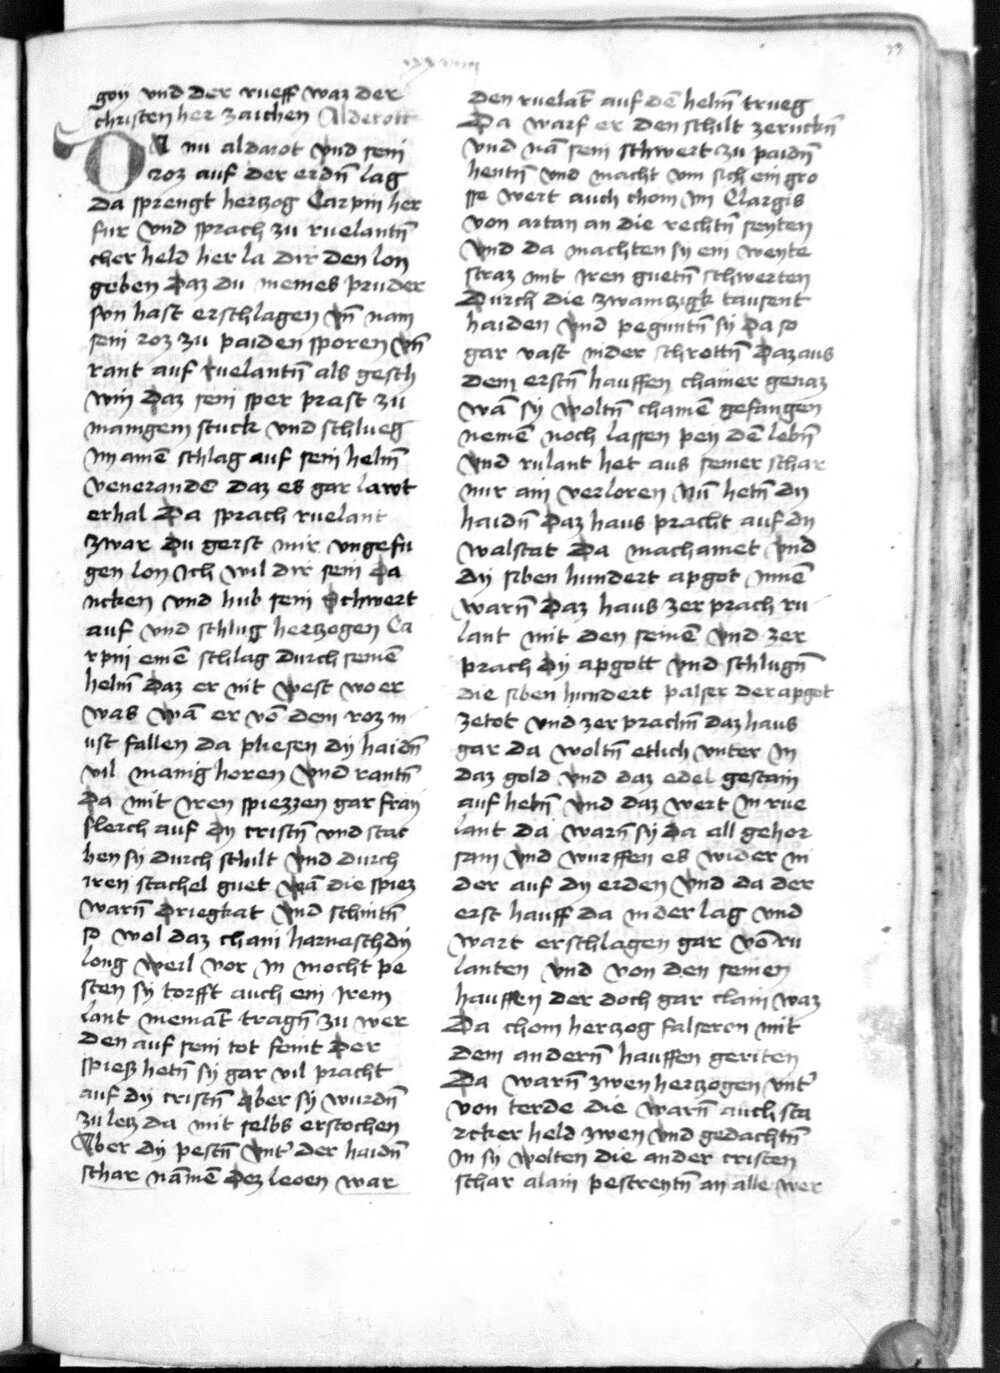 33
xxxiiii
gon vnd der rueff waz der
christen her zaichen Alderott
DA nu aldarot vnd sein
roz auf der erdn̄ lag
da sprengt hertzog Carpin her
fur vnd sprach zu ruelantn̄
cher held her la dir den lon
geben Daz du meines pruder
sun hast erschlagen vn̄ nam
sein roz zu paiden sporen vn̄
rant auf ruelantn̄ als gesch
win Daz sein sper prast zu
manigem stuck vnd schlueg
im ainē schlag auf sein helm̄
venerandē daz es gar lawt
erhal Da sprach ruelant
zwar Du gerst mir vngefu
gen lon Ich wil dir sein Da
ncken vnd hub sein Schwert
auf vnd schlug hertzogen Ca
rpin einē schlag durch seinē
helm̄ Daz er nit west wo er
was Wā er vō dem roz m
ust fallen da pliesen dy haidn̄
vil manig horen Vnd rantn̄
Da mit iren spiezzen gar frayſ
slerch auf Dy cristn̄ vnd stac
hen sy durch schilt Vnd durch
iren stachel guet Wā die spiez
warn̄ Driegkat Vnd schnitn̄
so wol daz chain harnasch dy
long weil vor in mocht pe
sten sy torfft auch ein irem
lant niemāt tragn̄ zu wer
den auf sein tot feint Der
spiesz hetn̄ sy gar vil pracht
auf dy cristn̄ Aber sy wurdn̄
zu letz da mit selbs erstochen
Aber dy pestn̄ Vnt' der haidn̄
schar nāmē Dez leoen war
den ruelāt auf dē helm̄ trueg
Da warf er den schilt zeruckn̄
Vnd nā sein schwert zu paidn̄
hentn̄ vnd macht vm sich ein gro
sse wert auch chom im Clargis
von artan an die rechtn̄ seyten
Vnd da machten sy ein weyte
straz mit iren guetn̄ schwerten
Durch die zwainzigk tausent
haiden Vnd peguntn̄ sy Da so
gar vast nider schrottn̄ Daz aus
dem erstn̄ hauffen chainer genaz
Wā sy Woltn̄ chainē gefangen
nemē noch lassen pey dē lebn̄
Vnd rulant het aus seiner schar
nur ain verloren Nū hetn̄ dy
haidn̄ Daz haus pracht auf dy
walstat Da machamet Vnd
dy siben hundert apgot innē
warn̄ Daz haus zerprach ru
lant mit den seinē Vnd zer
prach Dy apgott Vnd schlugn̄
die siben hundert palser der apgot
zetot vnd zerprachn̄ daz haus
gar da woltn̄ etlich vnter in
daz gold Vnd daz edel gestain
auf hebn̄ Vnd daz wert in rue
lant da warn̄ sy Da all gehor
sam Vnd wurffen es wider ni
der auf dy erden Vnd da der
erst hauff da nider lag vnd
wart erschlagen gar vō ru
lanten vnd von den seinen
hauffen der doch gar clain waz
Da chom hertzog falseron mit
dem andern̄ hauffen geriten
Da warn̄ zwen hertzogen vnt'
von terde die warn̄ auch sta
rcker held zwen Vnd gedachtn̄
in sy wolten die ander cristen
schar alain pestreytn̄ an alle wer